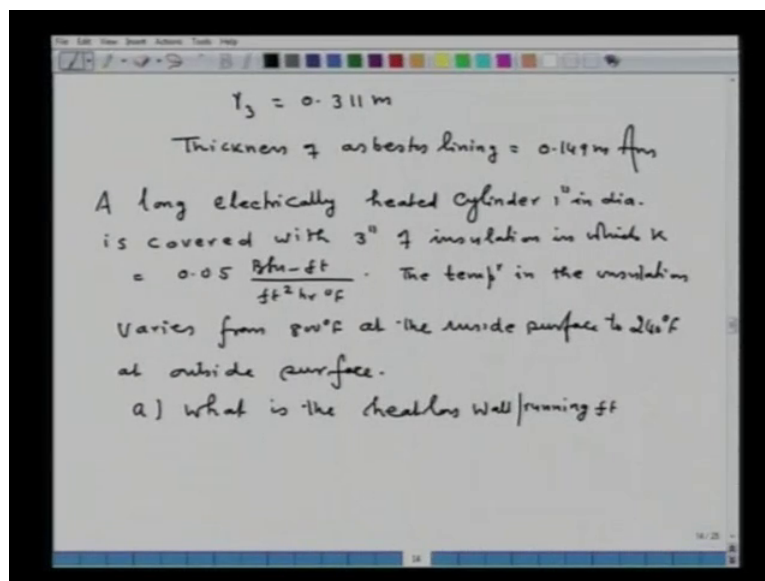 File Edit View Insert Actions Tools Help
r₃ = 0.311 m
Thickness of asbestos lining = 0.149 m Ans
A long electrically heated cylinder 1" in dia.
is covered with 3" of insulation in which K
= 0.05 Btu-ft / ft² hr °F . The tempʳ in the insulation
varies from 800°F at the inside surface to 240°F
at outside surface.
a) what is the heat loss Wall/running ft
14/25
14